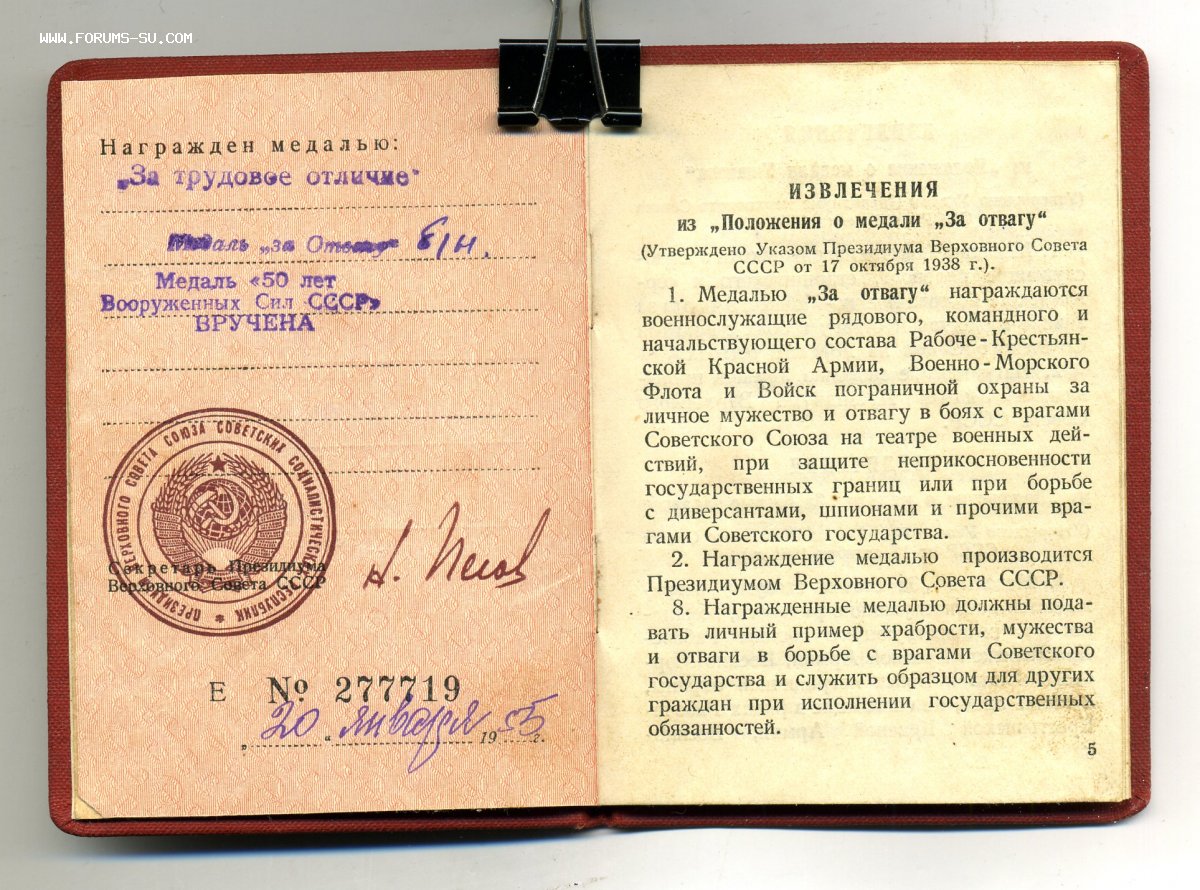 WWW.FORUMS-SU.COM
Награжден медалью:
„За трудовое отличие"
Медаль „за Отвагу" б/н.
Медаль «50 лет
Вооруженных Сил СССР»
ВРУЧЕНА
ПРЕЗИДИУМ ВЕРХОВНОГО СОВЕТА СОЮЗА СОВЕТСКИХ СОЦИАЛИСТИЧЕСКИХ РЕСПУБЛИК
Секретарь Президиума
Верховного Совета СССР
Е № 277719
„20" января 1955 г.
ИЗВЛЕЧЕНИЯ
из „Положения о медали „За отвагу"
(Утверждено Указом Президиума Верховного Совета
СССР от 17 октября 1938 г.).
1. Медалью „За отвагу" награждаются
военнослужащие рядового, командного и
начальствующего состава Рабоче-Крестьян-
ской Красной Армии, Военно-Морского
Флота и Войск пограничной охраны за
личное мужество и отвагу в боях с врагами
Советского Союза на театре военных дей-
ствий, при защите неприкосновенности
государственных границ или при борьбе
с диверсантами, шпионами и прочими вра-
гами Советского государства.
2. Награждение медалью производится
Президиумом Верховного Совета СССР.
8. Награжденные медалью должны пода-
вать личный пример храбрости, мужества
и отваги в борьбе с врагами Советского
государства и служить образцом для других
граждан при исполнении государственных
обязанностей.
5